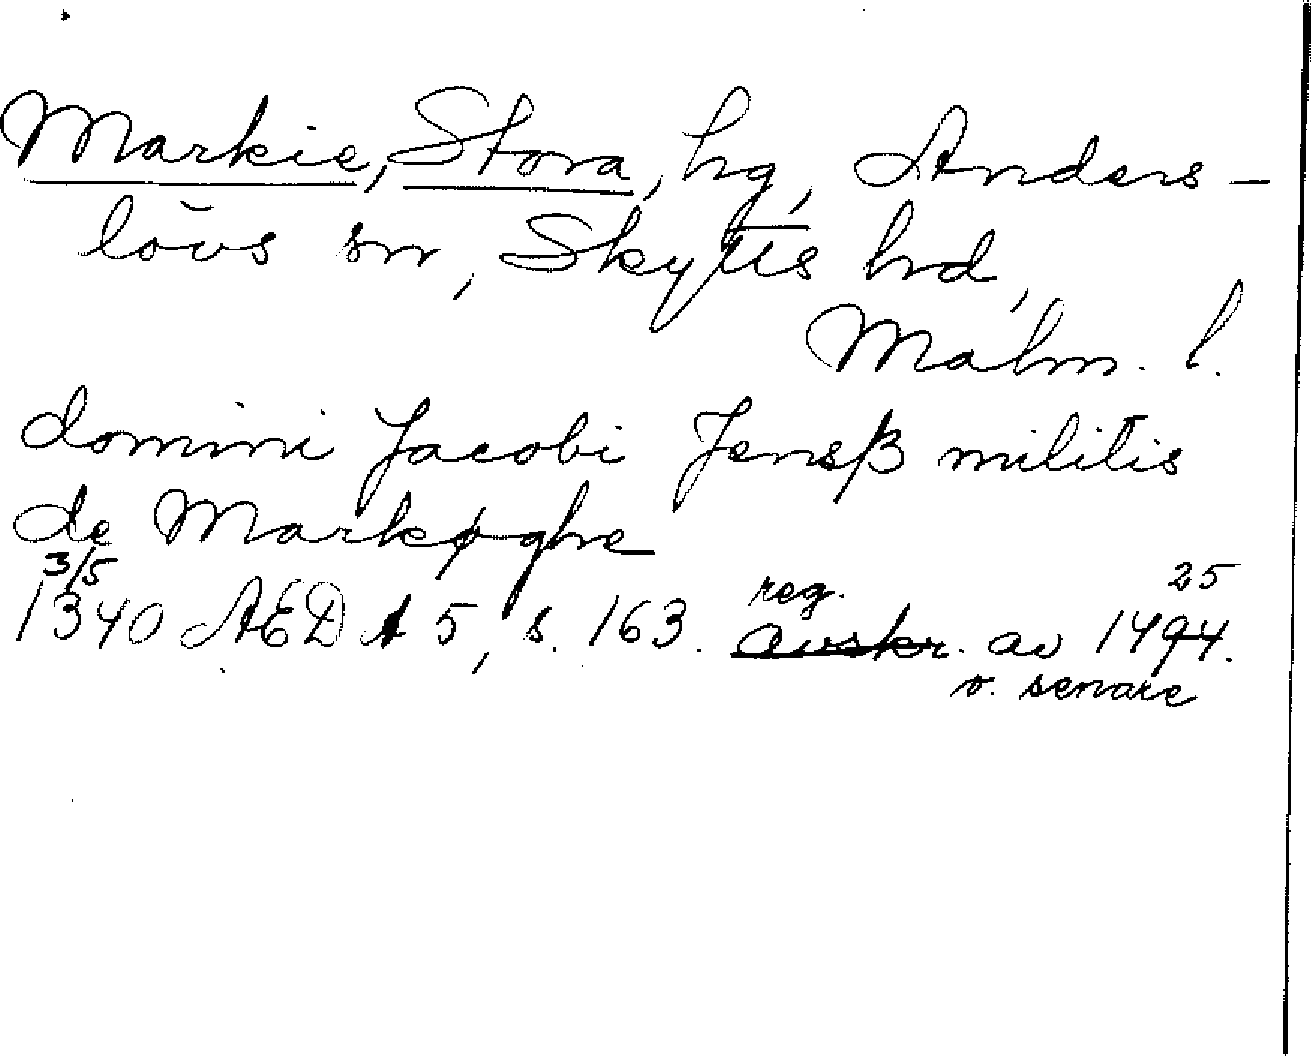 Markie, Stora, hg, Anders-
lövs sn, Skytts hd,
Malm. l.
domini Jacobi Jensβ militis
de Markøghe
3/5
1340 ÆD A 5, s. 163. reg. avskr. av 1494. 25
o. senare